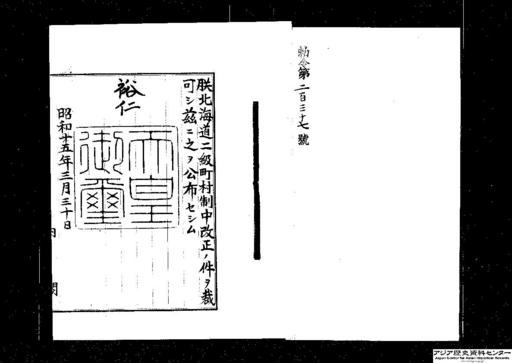 勅令第二百三十七號
朕北海道二級町村制中改正ノ件ヲ裁
可シ茲ニ之ヲ公布セシム
裕仁
天皇
御璽
昭和十五年三月三十日
内閣
アジア歴史資料センター
Japan Center for Asian Historical Records